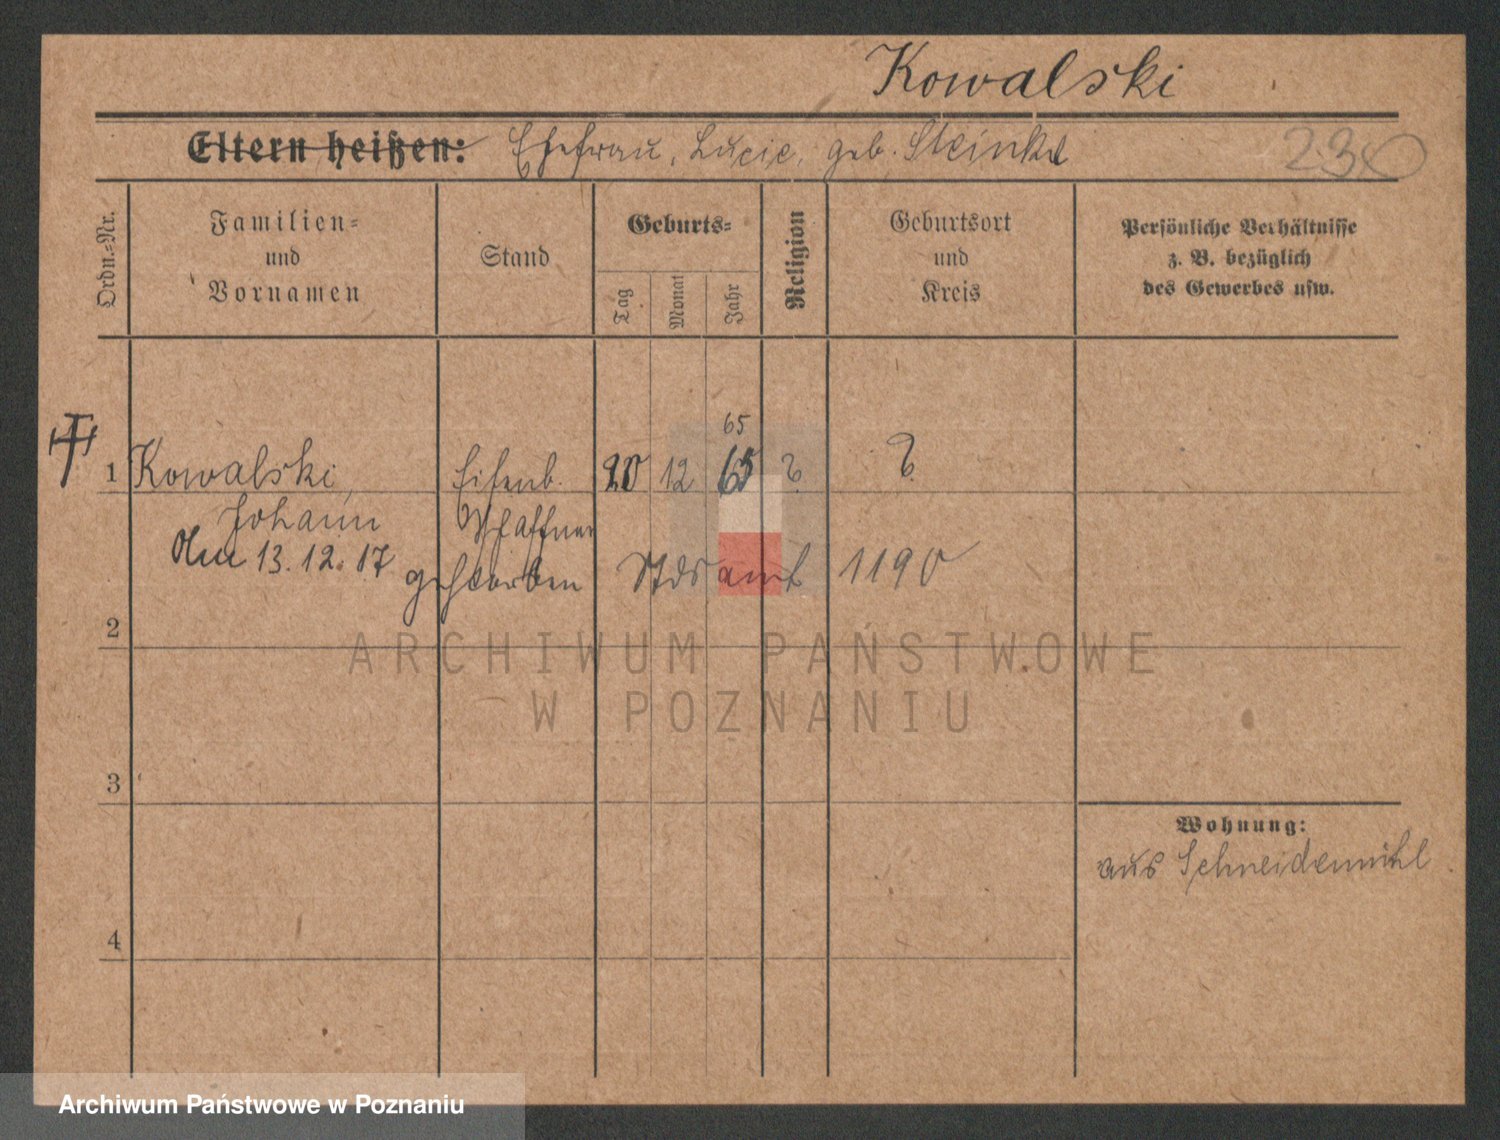 Kowalski
Eltern heißen: Ehefrau, Lucie, geb. Steinke
230
Ordn.-Nr.
Familien-
und
Vornamen
Stand
Geburts-
Tag
Monat
Jahr
Religion
Geburtsort
und
Kreis
Persönliche Verhältnisse
z. B. bezüglich
des Gewerbes usw.
65
1 Kowalski, Eisenb. 20 12 65 ? ?
Johann Schaffner
Am 13.12.17 gestorben Stdsamt 1190
2
ARCHIWUM PAŃSTWOWE
W POZNANIU
3
Wohnung:
aus Schneidemühl
4
Archiwum Państwowe w Poznaniu